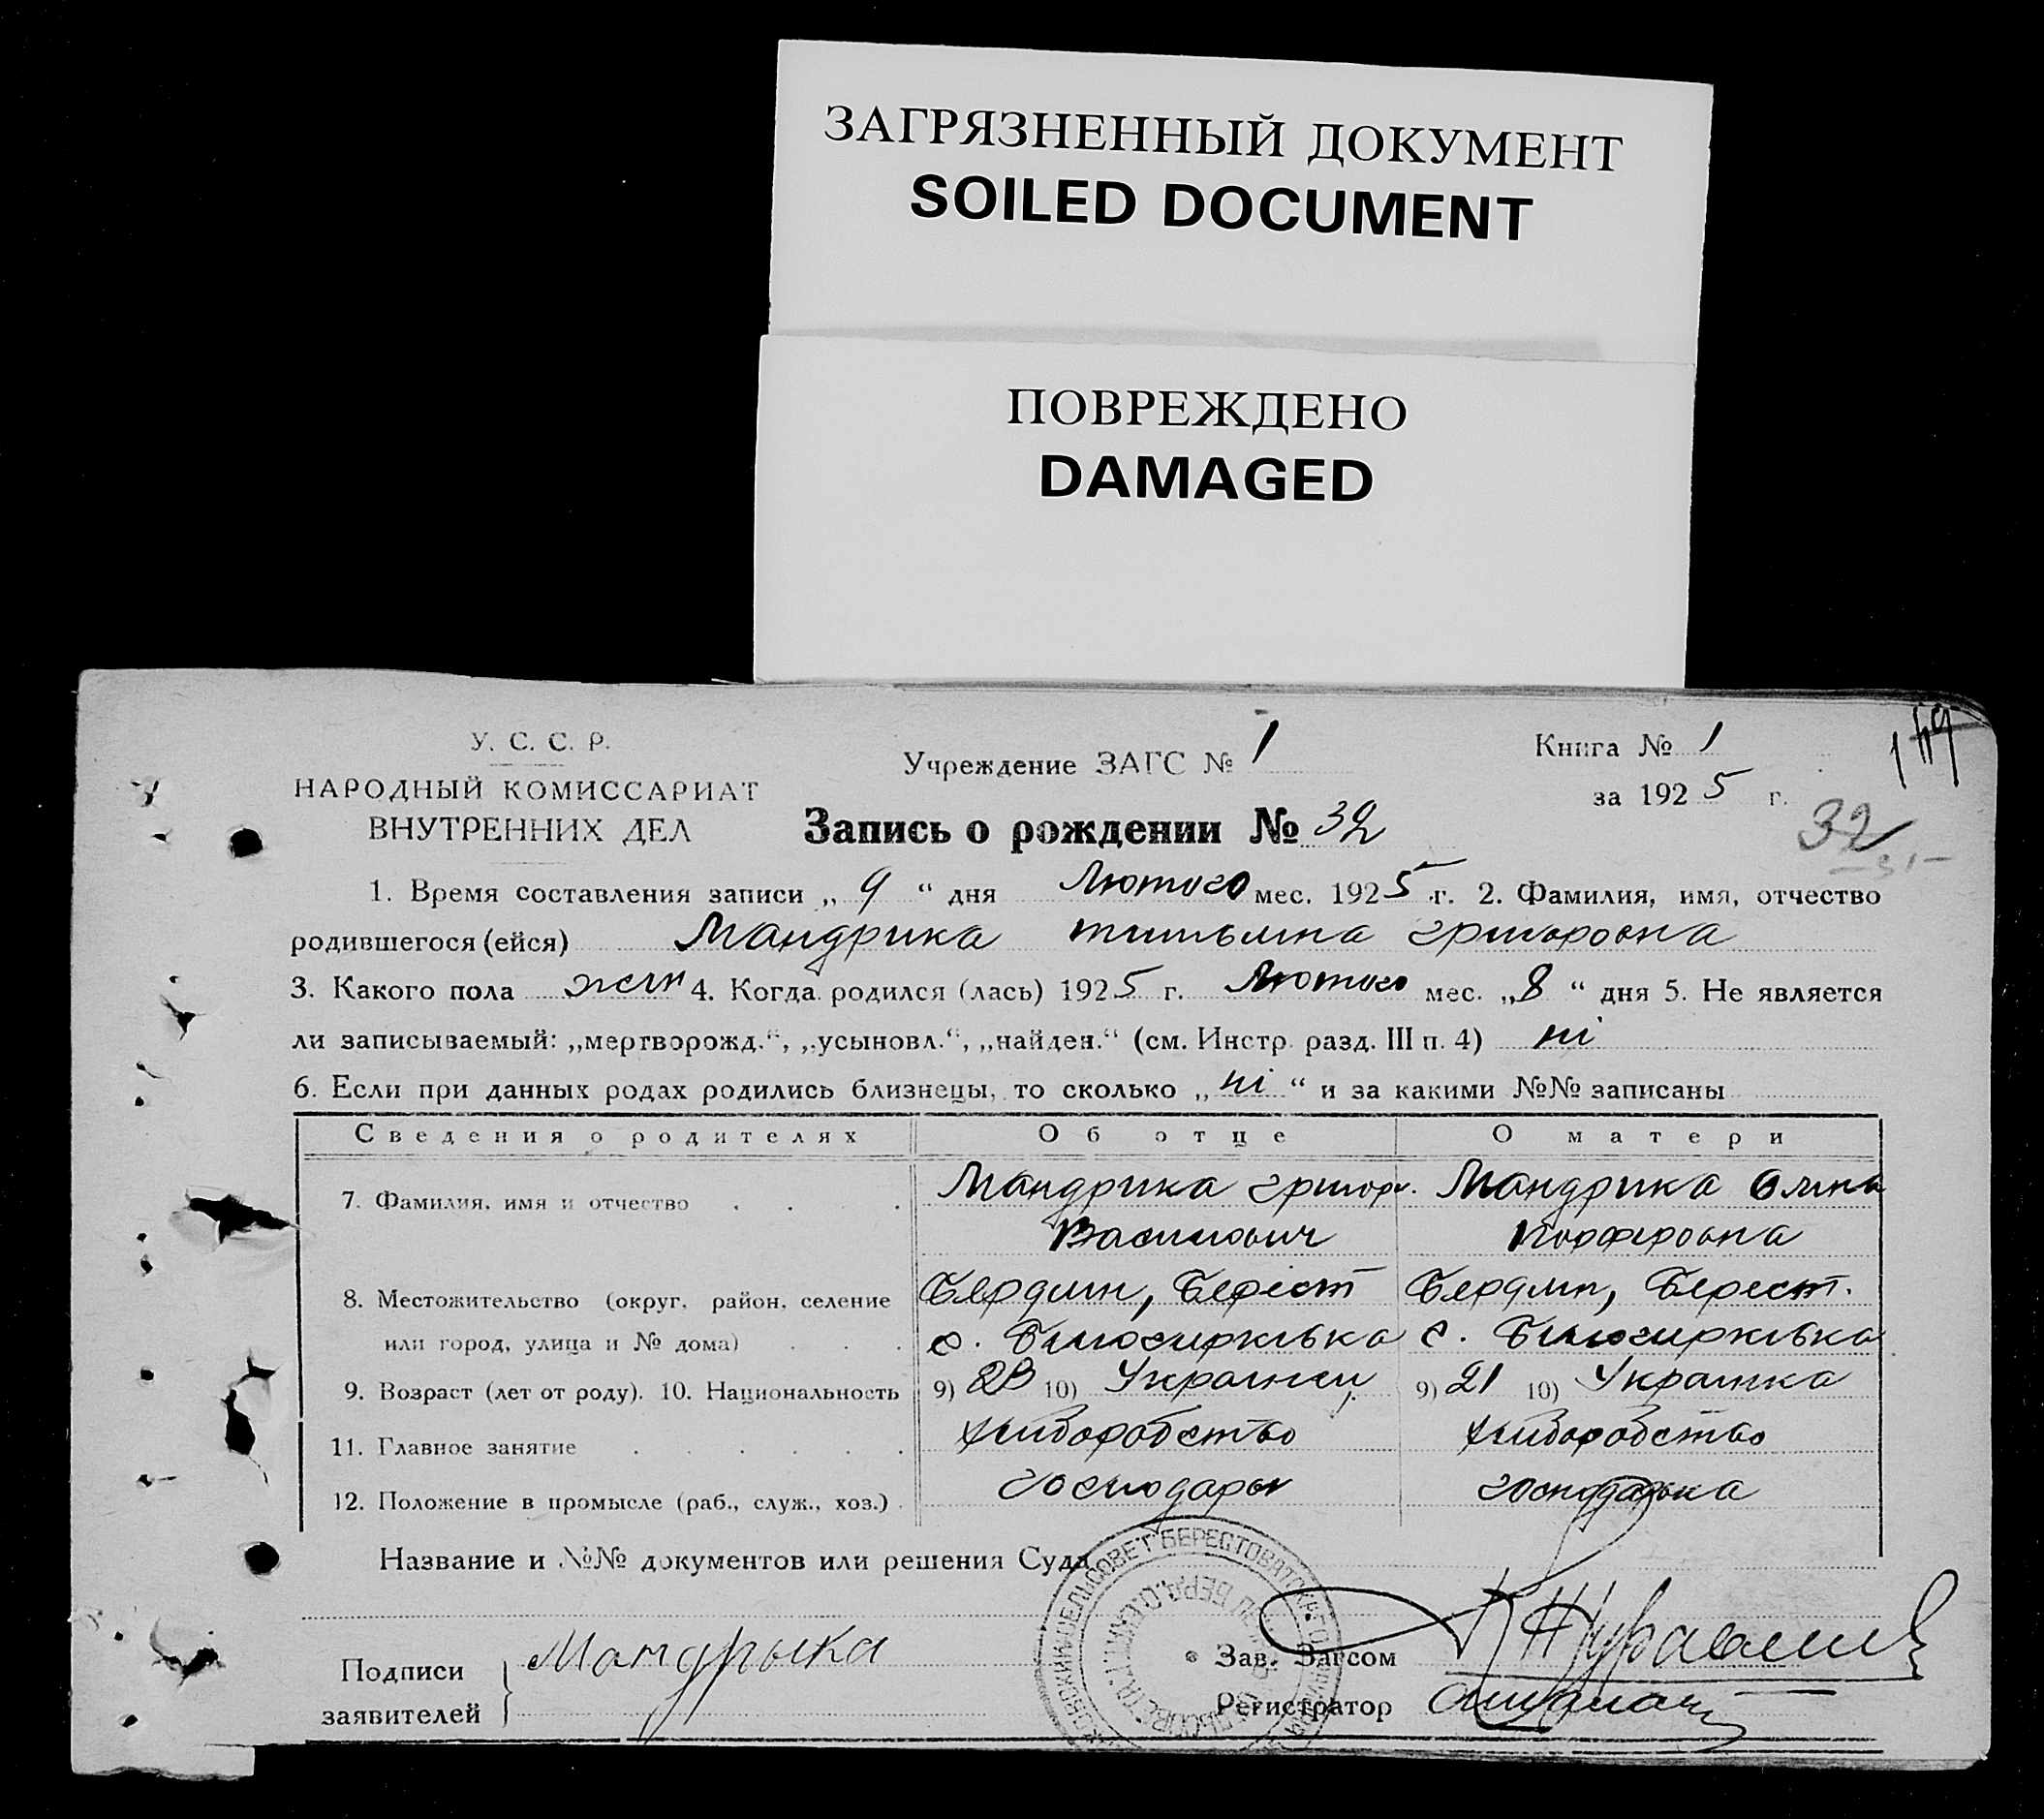 ЗАГРЯЗНЕННЫЙ ДОКУМЕНТ
SOILED DOCUMENT
ПОВРЕЖДЕНО
DAMAGED
У. С. С. Р.
НАРОДНЫЙ КОМИССАРИАТ
ВНУТРЕННИХ ДЕЛ
Учреждение ЗАГС № 1
Книга № 1
за 1925 г.
149
32
Запись о рождении № 32
1. Время составления записи „ 9 “ дня Лютого мес. 1925 г. 2. Фамилия, имя, отчество
родившегося (ейся) Мандрика григоровна
3. Какого пола жен 4. Когда родился (лась) 1925 г. Лютого мес. „8 “ дня 5. Не является
ли записываемый: „мертворожд.“, „усыновл.“, „найден.“ (см. Инстр. разд. III п. 4) ні
6. Если при данных родах родились близнецы, то сколько „ ні “ и за какими №№ записаны
Сведения о родителях Об отце О матери
7. Фамилия, имя и отчество Мандрика григор. Мандрика Олина
Василович Порфировна
8. Местожительство (округ, район, селение Бердян, Берест Бердян, Берест.
или город, улица и № дома) с. Білоцирківка с. Білоцирківка
9. Возраст (лет от роду). 10. Национальность 9) 23 10) Украінец 9) 21 10) Украінка
11. Главное занятие хліборобство хліборобство
12. Положение в промысле (раб., служ., хоз.) господарь господарька
Название и №№ документов или решения Суда
Подписи заявителей Мандрыка
Зав. Загсом Журавлев
Регистратор